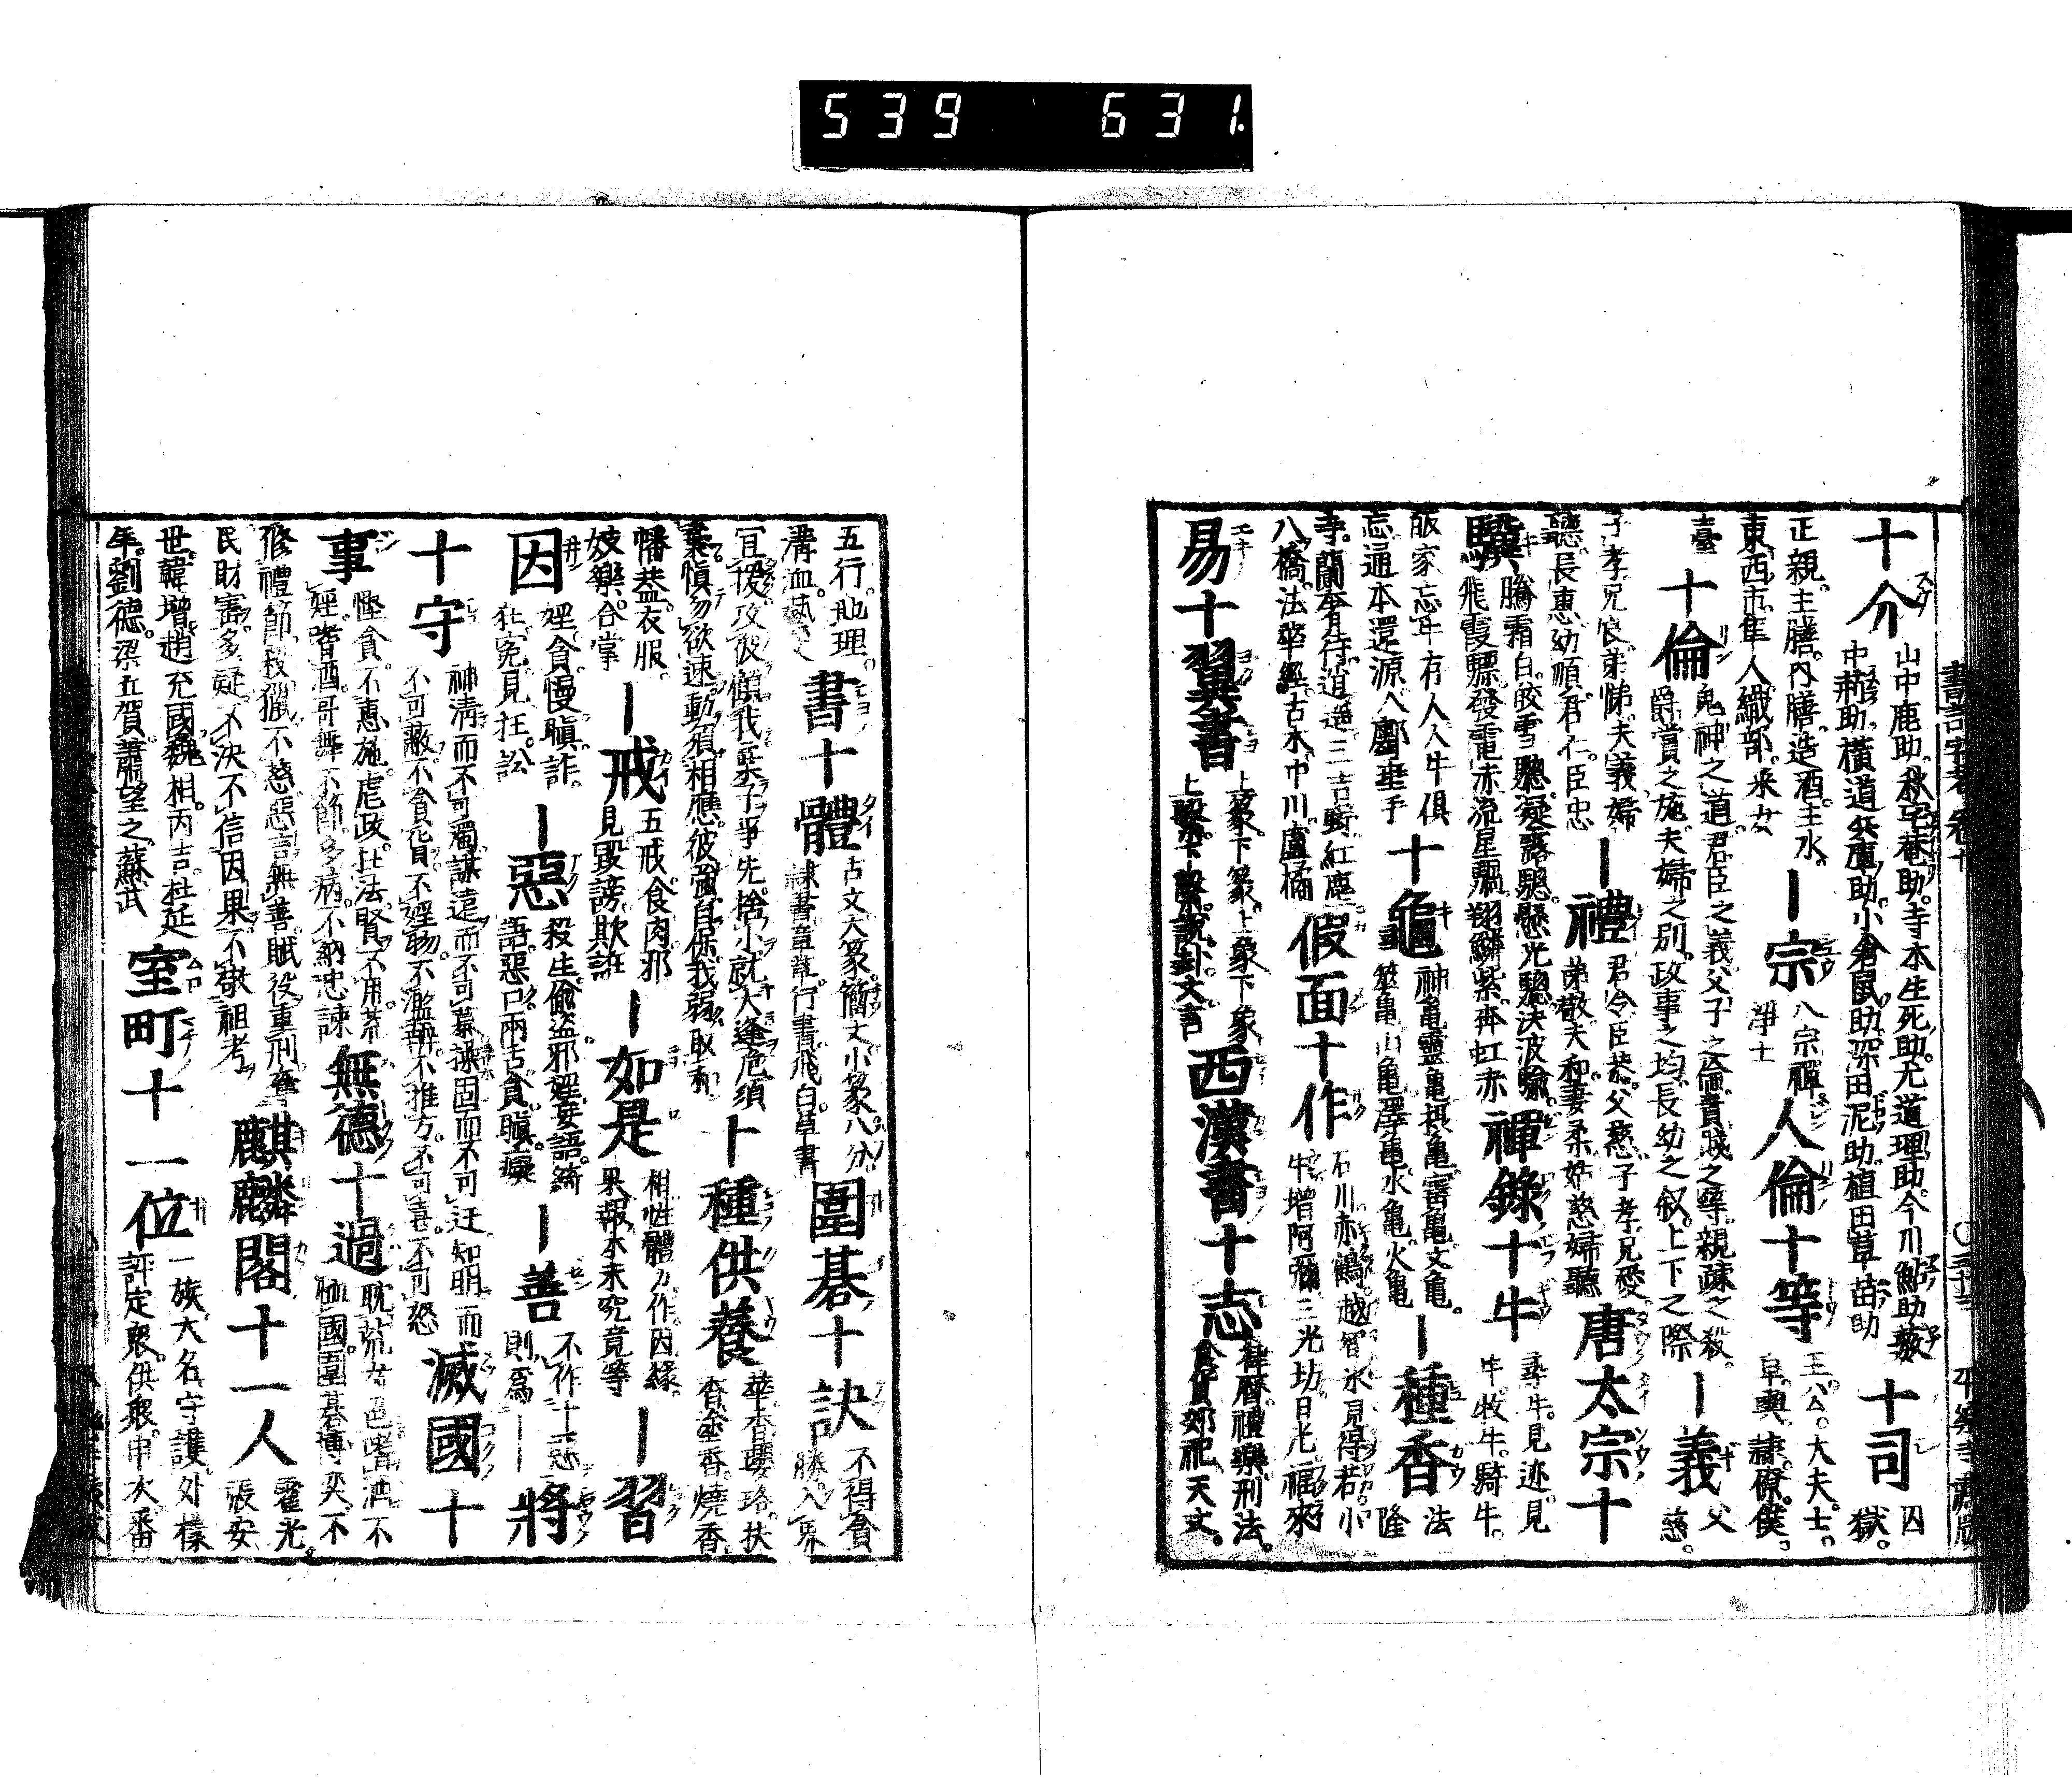 539 631
十介 山中鹿助。秋宅菴助。寺本生死助。尤道理助。今川鮎助。藪
中荊助。橫道兵庫助。小倉鼠助。深田泥助。植田草苗助 十司 囚獄。
正親。主膳。內膳。造酒。主水。
東西市。隼人。織部。采女 ー宗 八宗禪淨土 人倫十等 王。公。大夫。士。
皁。輿。隷。僚。僕。
臺 十倫 鬼神之道。君臣之義。父子之倫。貴賤之等。親疎之殺。
爵賞之施。夫婦之別。政事之均。長幼之叙。上下之際 ー義 父慈。
子孝。兄良。弟悌。夫義。婦
聽。長惠。幼順。君仁。臣忠 ー禮 君令。臣恭。父慈。子孝。兄愛。
弟敬。夫和。妻柔。姑慈。婦聽 唐太宗十
驥 騰霜白。皎雪驄。凝露驄。懸光驄。決波騟。
飛霞驃。發電赤。流星騧。翔麟紫。奔虹赤 禪錄十牛 尋牛。見迹。見
牛。牧牛。騎牛。
皈家。忘牛存人。人牛俱
忘。通本還源。入鄽垂手 十龜 神龜。靈龜。攝龜。寶龜。文龜。
筮龜。山龜。澤龜。水龜。火龜 ー種香 法隆
寺。蘭奢待。逍遥。三吉野。紅塵。
八橋。法華經。古木。中川。盧橘 假面十作 石川。赤鶴。越智。氷見。得若。小
牛。增阿彌。三光坊。日光。福來
易十翼書 上彖。下彖。上象。下象。
上繫。下繫。說卦。文言 西漢書十志 律曆。禮樂。刑法。
食貨。郊祀。天文。
五行。地理。
溝洫。藝文 書十體 古文。大篆。籀文。小篆。八分。
隷書。章草。行書。飛白。草書 圍碁十訣 不得貪
勝。入界
宜緩。攻彼顧我。棄子爭先。捨小就大。逢危須
棄。愼勿欲速。動須相應。彼強自保。我弱取和 ー種供養 華。香。瓔珞。抹
香。塗香。燒香。
幡蓋。衣服。
妓樂。合掌 ー戒 五戒。食肉。邪
見。毀謗。欺誑 ー如是 相。性。體。力。作。因。緣。
果。報。本末究竟等 ー習
因 婬。貪。慢。瞋。詐。
誑。寃。見。枉。訟 ー惡 殺生。偸盜。邪婬。妄語。綺
語。惡口。兩舌。貪。瞋。癡 ー善 不作十惡
則爲ーー 將
十守 神淸而不可濁。謀遠而不可慕。操固而不可迁。知明而
不可蔽。不貪貨。不婬物。不濫辯。不推方。不可喜。不可怒 滅國十
事 慳貪。不惠施。虐政。壯法。賢不用。
婬。嗜酒。哥舞不節。多病。不納忠諫 無德十過 耽荒女色。嗜酒不
恤國。圍碁博奕。不
修禮節。殺獵不慈。惡言無善。賦役重。刑
民財審。多疑不決。不信因果。不敬祖考 麒麟閣十一人 霍光。
張安
世。韓增。趙充國。魏相。丙吉。杜延
年。劉德。梁丘賀。蕭望之。蘇武 室町十一位 一族。大名。守護。外樣。
評定衆。供衆。申次。番